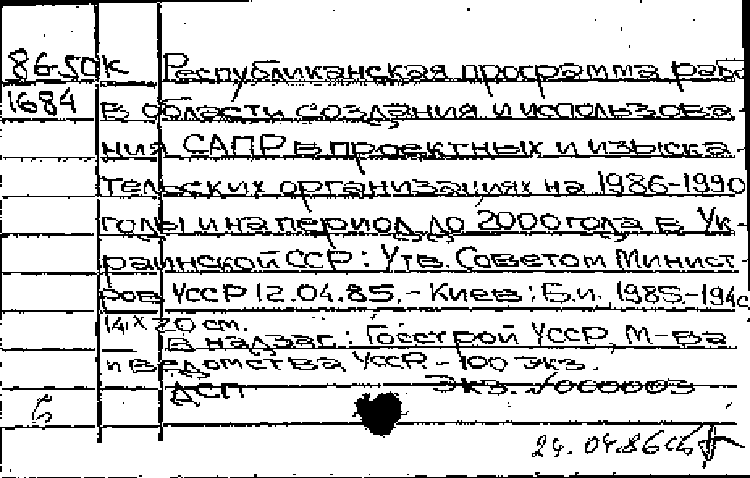 8650к Республиканская программа раб
1684 в области создания и использова-
ния САПР в проектных и изыска-
тельских организациях на 1986-1990
годы и на период до 2000 года в Ук-
раинской ССР: Утв. Советом Минист-
ров УССР 12.04.85. - Киев: Б.и., 1985.-194с
14 х 20 см.
В надзаг.: Госстрой УССР, М-ва
и ведомства УССР - 100 экз.
ДСП Экз. №000003
24.04.86